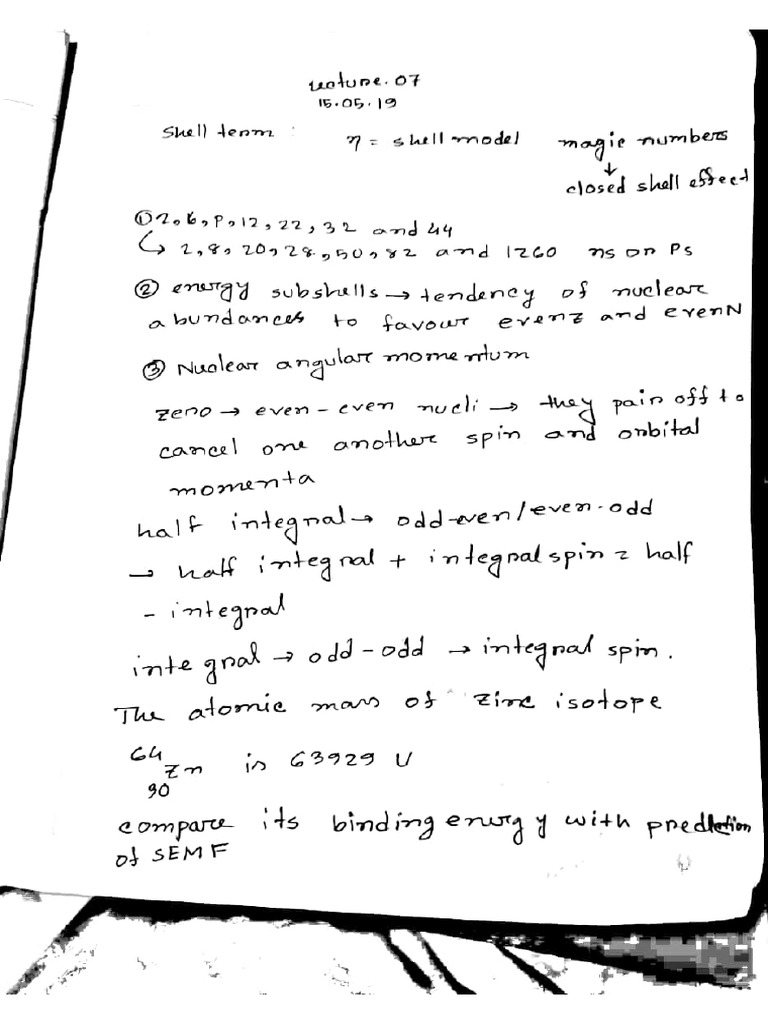 Lecture. 07
15.05.19
Shell term : η = shell model magic numbers
↓
closed shell effect
① 2, 6, P, 12, 22, 32 and 44
↳ 2, 8, 20, 28, 50, 82 and 1260 ns or Ps
② energy subshells → tendency of nuclear
abundances to favour evenz and evenN
③ Nuclear angular momentum
zero → even - even nucli → they pair off to
cancel one another spin and orbital
momenta
half integral → odd-even/even-odd
→ half integral + integral spin = half
- integral
integral → odd-odd → integral spin.
The atomic mass of zinc isotope
64
Zn is 63929 U
30
compare its binding energy with prediction
of SEMF